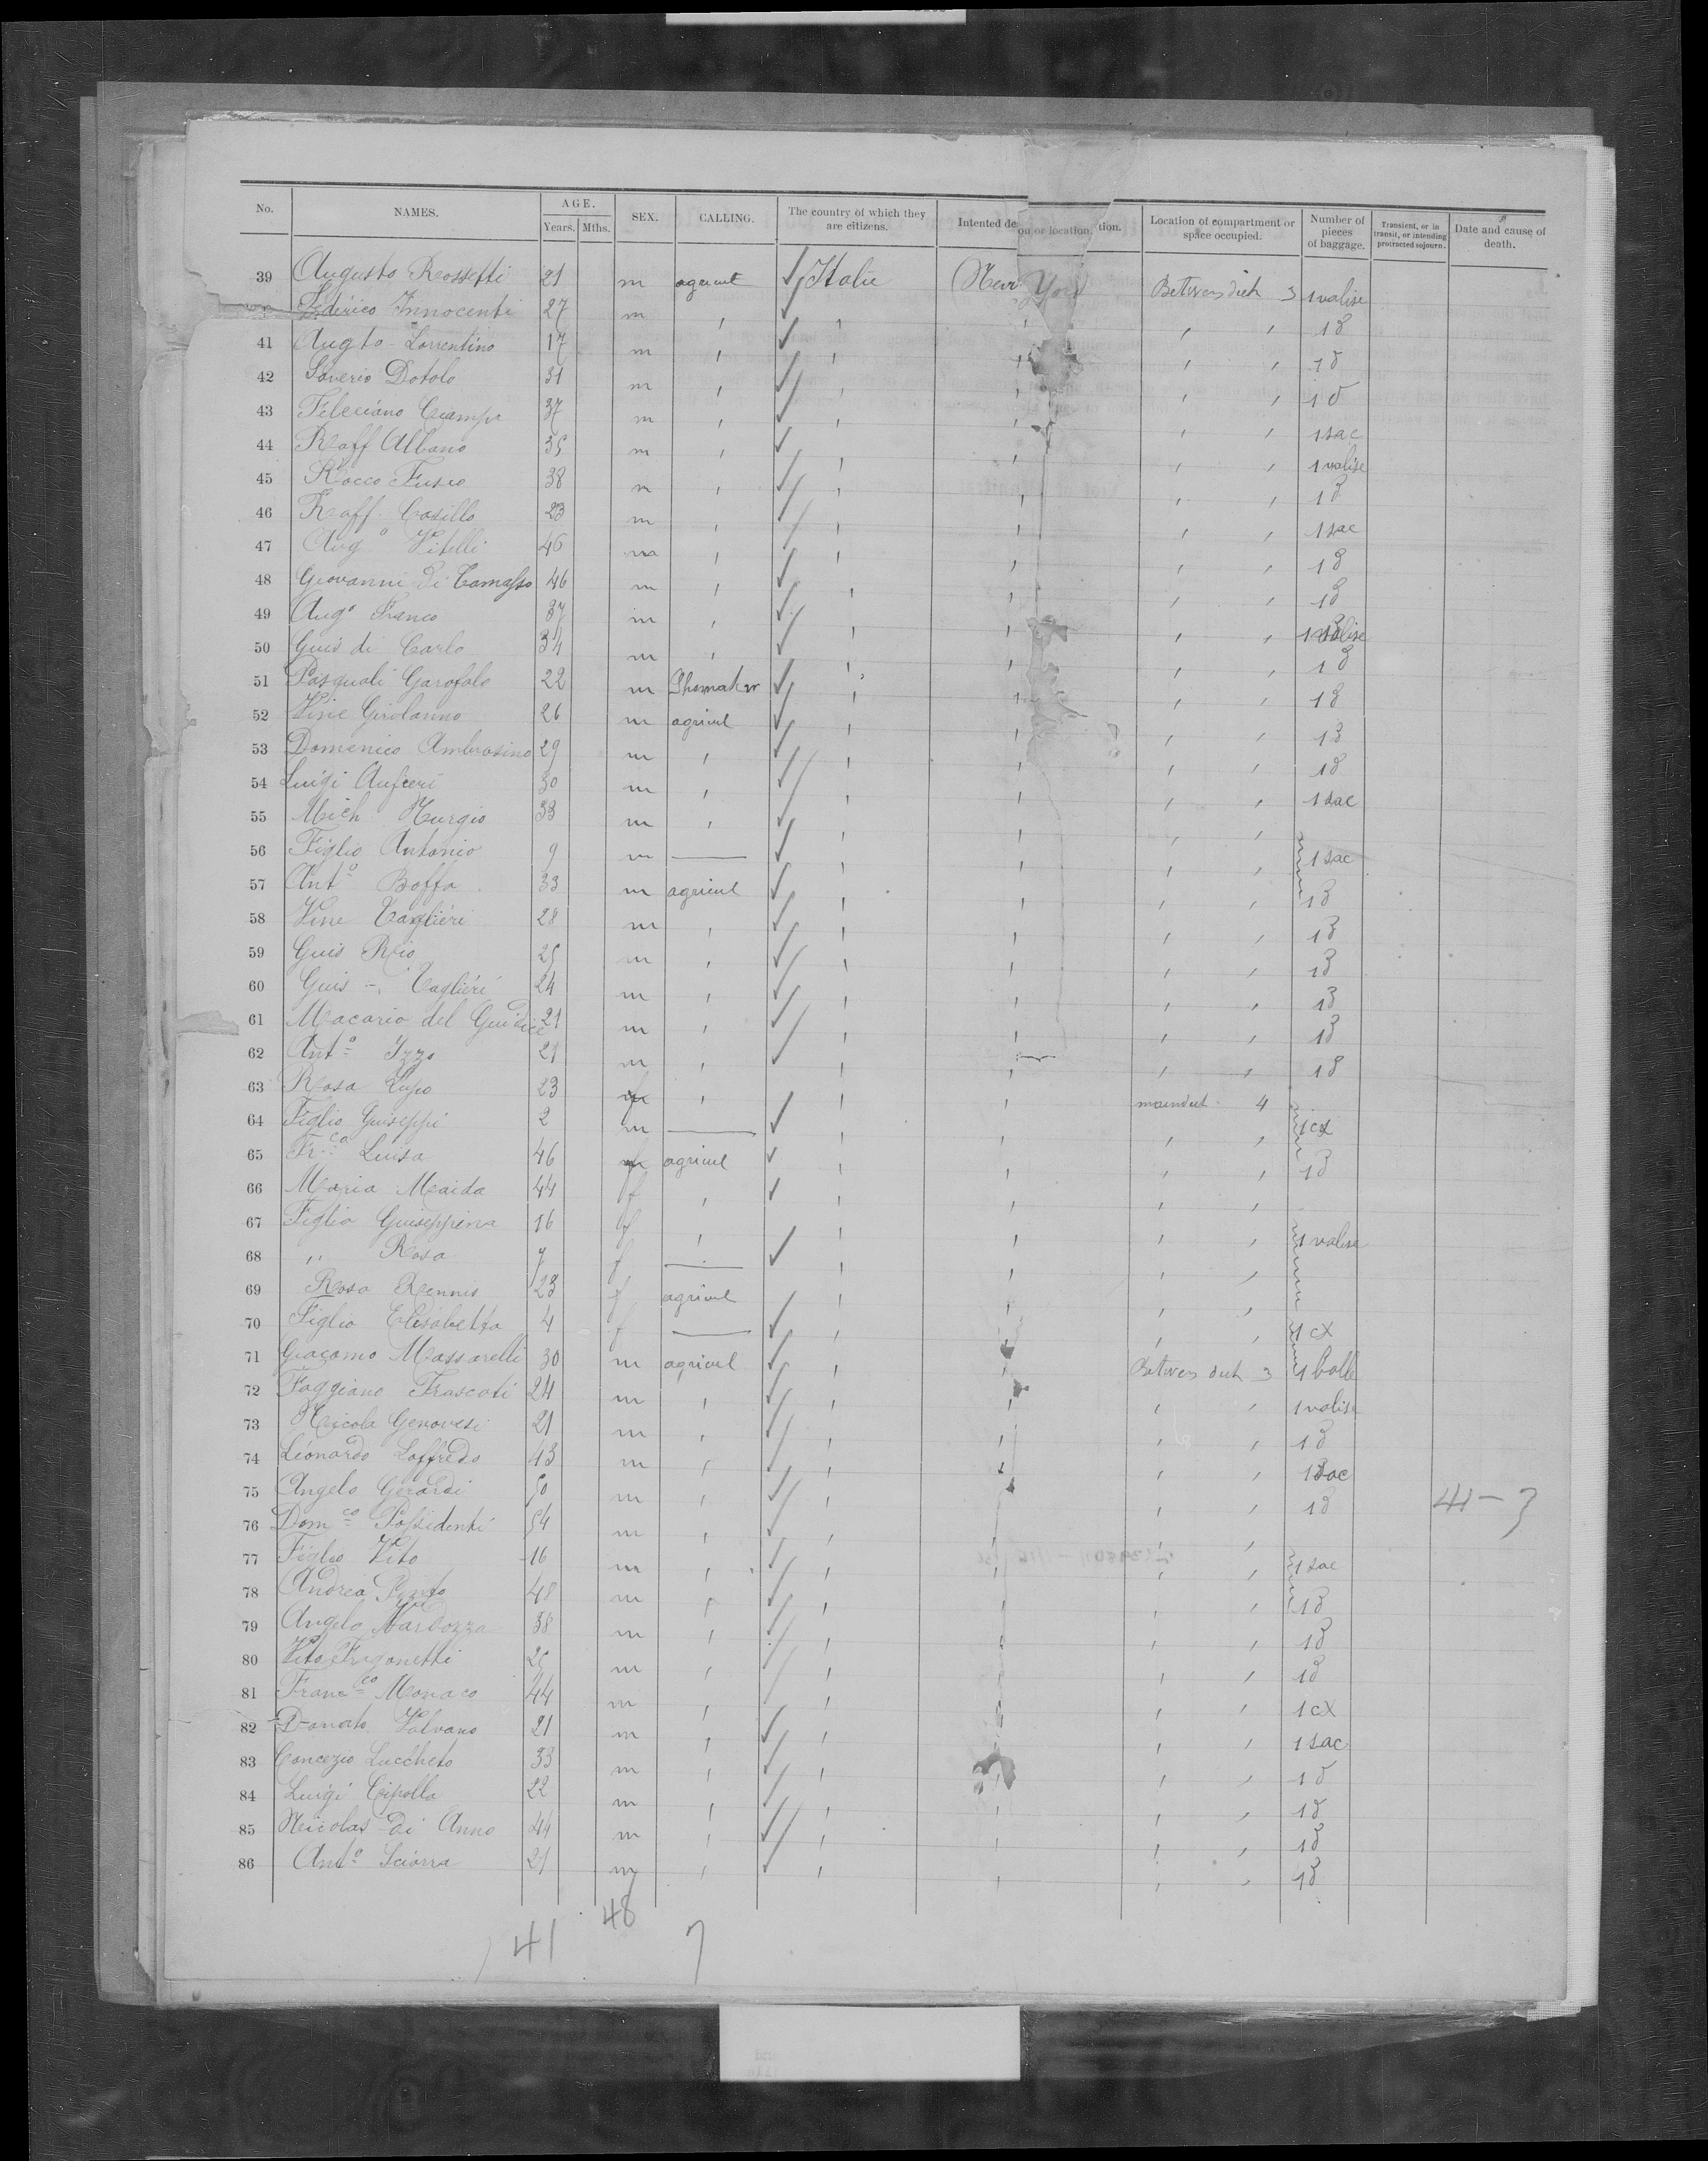 No. NAMES. AGE. Years. Mths. SEX. CALLING. The country of which they are citizens. Intented de on or location. tion. Location of compartment or space occupied. Number of pieces of baggage. Transient, or in transit, or intending protracted sojourn. Date and cause of death.
39 Augusto Rossetti 21 m agricult Italie New York Between deck 3 1 valise
Federico Innocenti 27 m
41 Augto Lorrentino 17 m
42 Saverio Dotolo 31 m
43 Feleciano Ciampa 37 m 1 sac
44 Raff Albano 35 m 1 valise
45 Rocco Fusco 38 m
46 Raff. Casillo 23 m 1 sac
47 Augo Vitelli 46 m
48 Giovanni di Tomasso 46 m
49 Augo Franco 37 m 1 valise
50 Guis di Carlo 34 m
51 Pasquali Garofalo 22 m Shomaker
52 Vinc Girolanno 26 m agricul
53 Domenico Ambrosino 29 m
54 Luigi 30 m 1 sac
55 Mich Murgio 33 m
56 Figlio Antonio 9 m 1 sac
57 Anto Boffa 33 m agricul
58 Vinc Taglieri 28 m
59 Guis Rio 25 m
60 Guis Taglieri 24 m
61 Macario del Giudice 21 m
62 Anto Izzo 21 m
63 Rosa Lupo 23 f maindeck 4
64 Figlio Guiseppi 2 m 1 cx
65 Fr.ca Luisa 46 f agricul
66 Maria Maida 44 f
67 Figlia Guiseppina 16 f 1 valise
68 " Rosa 7 f
69 Rosa Rennis 23 f agricul
70 Figlia Elisabetta 4 f 1 cx
71 Giacomo Massarelli 30 m agricul Between deck 3 1 balle
72 Faggiano Frascati 24 m 1 valise
73 Nicola Genovesi 21 m
74 Leonardo Loffredo 43 m 1 sac
75 Angelo Gerardi 50 m 41 - 3
76 Dom.co Possidenti 54 m
77 Figlio Vito 16 m 1 sac
78 Andrea Pinto 48 m
79 Angelo Nardozza 38 m
80 Vito Frigonetti 25 m
81 Franco Monaco 44 m 1 cx
82 Donato Valvano 21 m 1 sac
83 Concezio Luccheto 33 m
84 Luigi Cipolla 22 m
85 Nicolas di Anno 44 m
86 Anto Sciorra 21 m
48
41 7